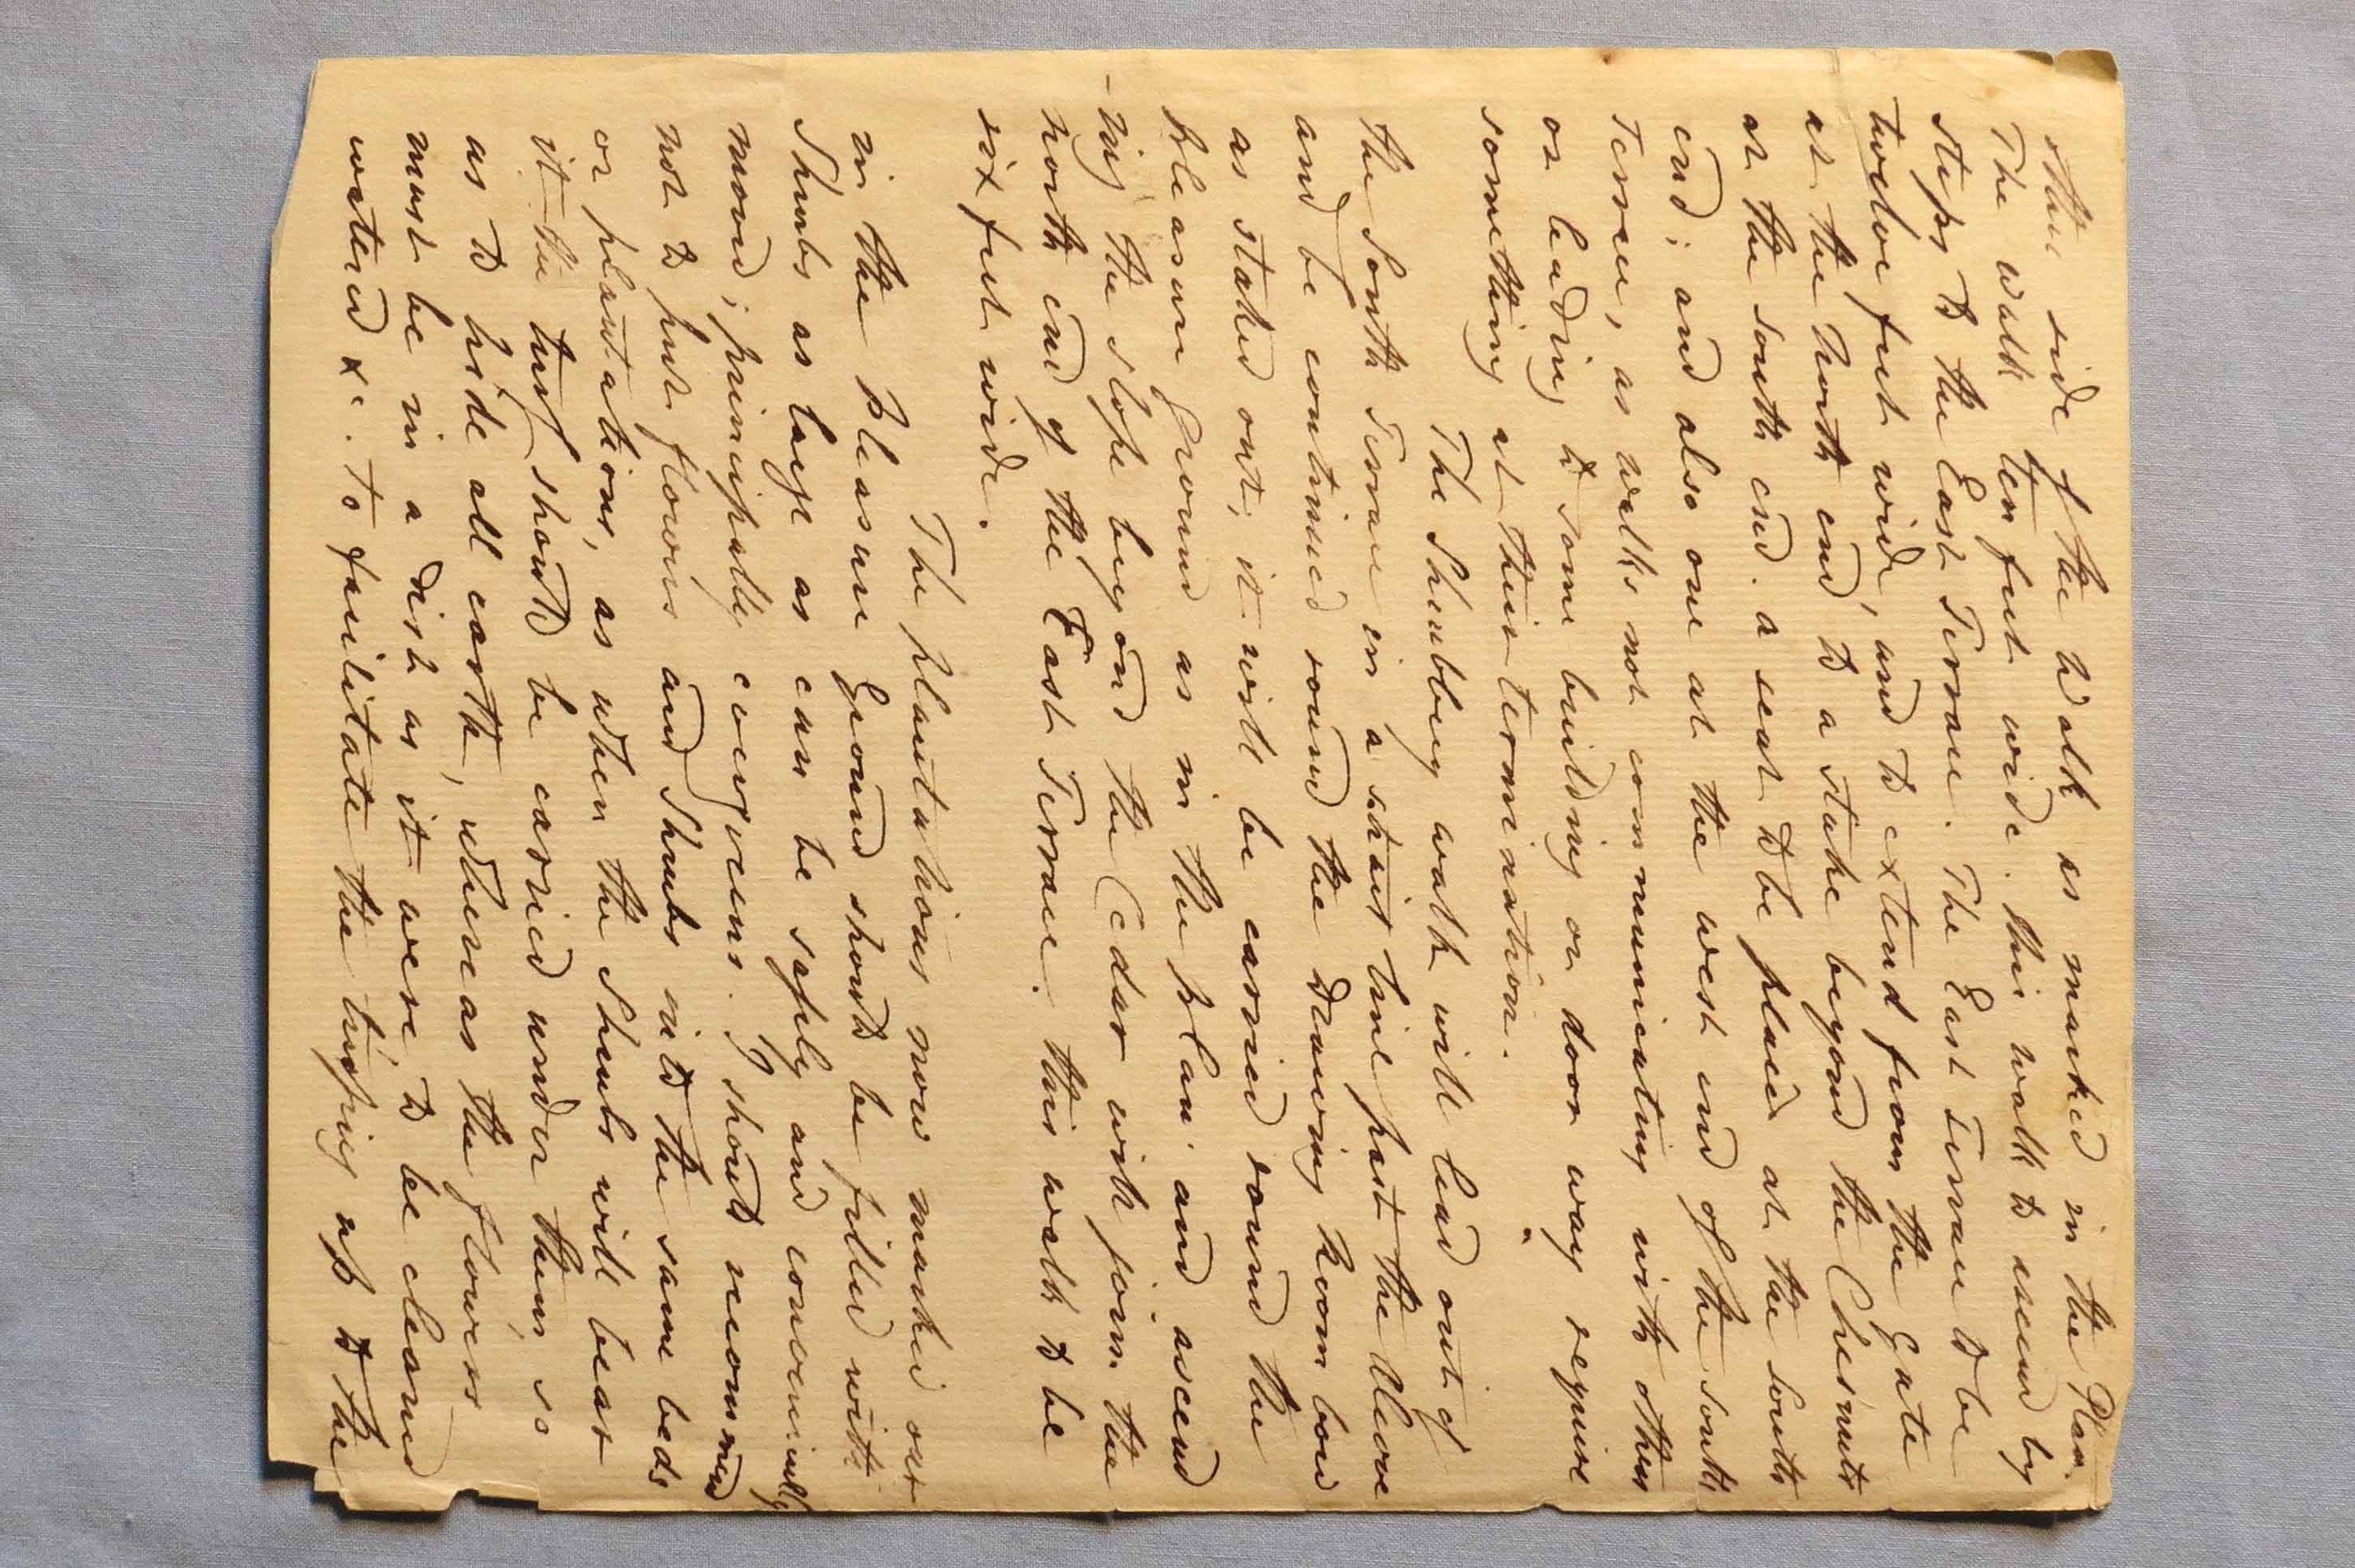 this side of the Walk as marked in the Plan.
The walk ten feet wide. this walk to ascend by
steps to the East Terrace. The East Terrace to be
twelve feet wide, and to extend from the Gate
at the North end to a stake beyond the Chesnuts
at the south end. a seat to be placed at the South
end; and also one at the west end of the South
Terrace, as walks not communicating with others
or leading to some building or door way require
something at their termination.
The Shrubbery walk will lead out of
the South Terrace in a strait line past the Alcove
and be continued round the Drawing Room bow
as staked out; it will be carried round the
pleasure Ground as in the plan and ascend
-ing the slope beyond the Cedar will join the
north end of the East Terrace. this walk to be
six feet wide.
The plantations now marked out
in the pleasure Ground should be filled with
Shrubs as large as can be safely and conveniently
moved; principally evergreens. I should recommend
not to put flowers and Shrubs into the same beds
or plantations, as when the Shrubs will bear
it the turf should be carried under them, so
as to hide all earth, whereas the flowers
must be in a dish as it were, to be cleaned
watered &c. To facilitate the tying up to the